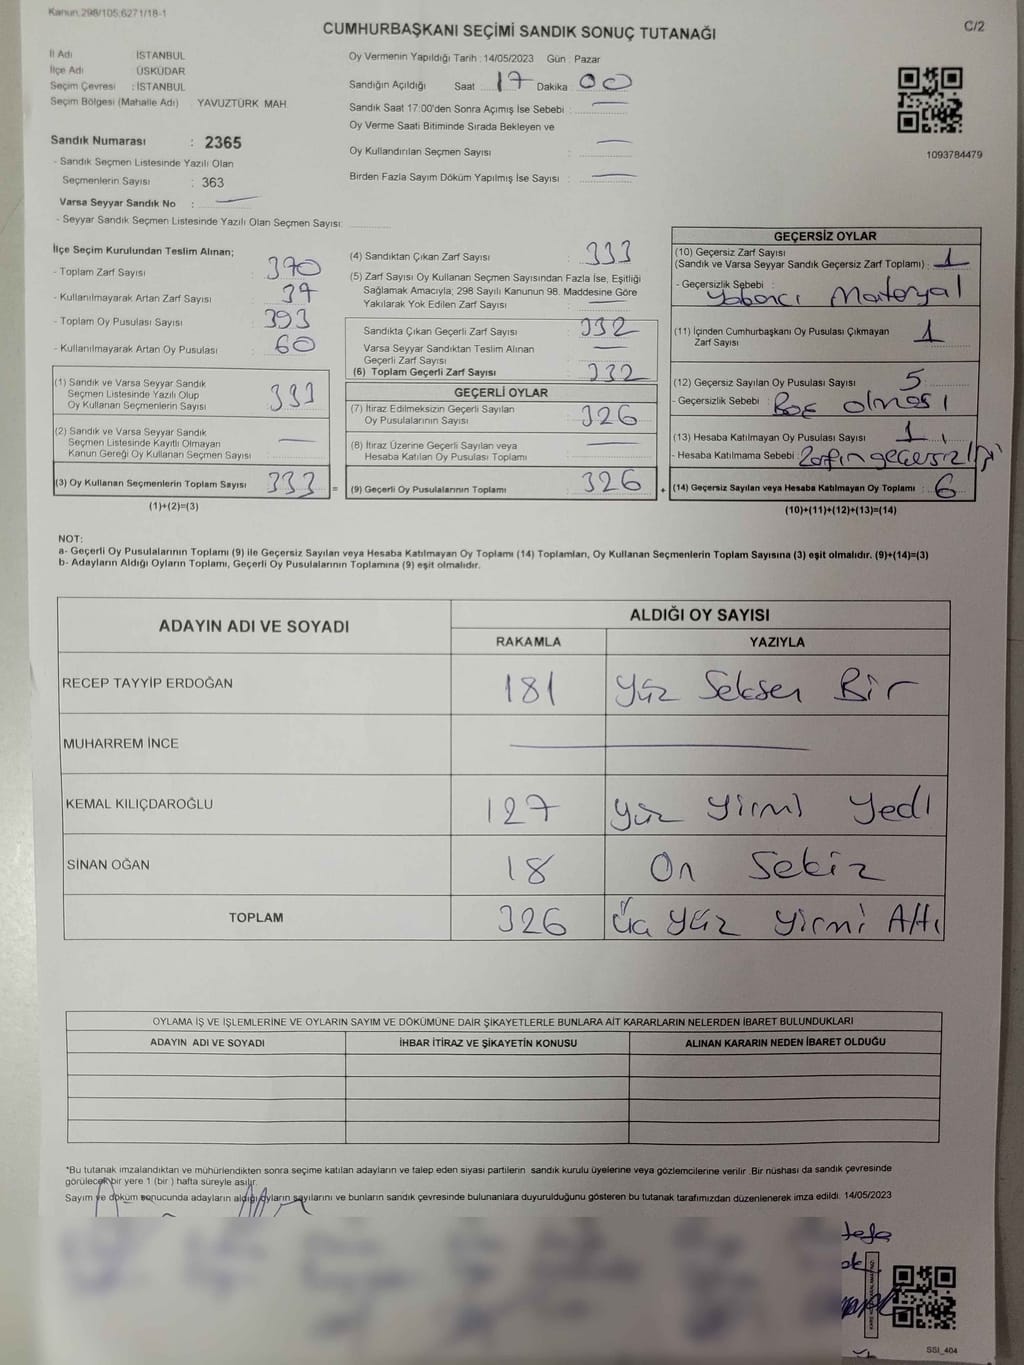 Kanun.298/105:6271/18-1
CUMHURBAŞKANI SEÇİMİ SANDIK SONUÇ TUTANAĞI
C/2
İl Adı İSTANBUL
İlçe Adı ÜSKÜDAR
Seçim Çevresi : İSTANBUL
Seçim Bölgesi (Mahalle Adı) YAVUZTÜRK MAH.
Sandık Numarası : 2365
- Sandık Seçmen Listesinde Yazılı Olan
Seçmenlerin Sayısı : 363
Varsa Seyyar Sandık No :
- Seyyar Sandık Seçmen Listesinde Yazılı Olan Seçmen Sayısı:
Oy Vermenin Yapıldığı Tarih : 14/05/2023 Gün : Pazar
Sandığın Açıldığı Saat 17 Dakika 00
Sandık Saat 17:00'den Sonra Açımış İse Sebebi :
Oy Verme Saati Bitiminde Sırada Bekleyen ve
Oy Kullandırılan Seçmen Sayısı :
Birden Fazla Sayım Döküm Yapılmış İse Sayısı :
1093784479
İlçe Seçim Kurulundan Teslim Alınan;
- Toplam Zarf Sayısı : 370
- Kullanılmayarak Artan Zarf Sayısı : 37
- Toplam Oy Pusulası Sayısı : 393
- Kullanılmayarak Artan Oy Pusulası : 60
(1) Sandık ve Varsa Seyyar Sandık
Seçmen Listesinde Yazılı Olup
Oy Kullanan Seçmenlerin Sayısı : 333
(2) Sandık ve Varsa Seyyar Sandık
Seçmen Listesinde Kayıtlı Olmayan
Kanun Gereği Oy Kullanan Seçmen Sayısı :
(3) Oy Kullanan Seçmenlerin Toplam Sayısı 333 =
(1)+(2)=(3)
(4) Sandıktan Çıkan Zarf Sayısı : 333
(5) Zarf Sayısı Oy Kullanan Seçmen Sayısından Fazla İse, Eşitliği
Sağlamak Amacıyla; 298 Sayılı Kanunun 98. Maddesine Göre
Yakılarak Yok Edilen Zarf Sayısı :
Sandıkta Çıkan Geçerli Zarf Sayısı : 332
Varsa Seyyar Sandıktan Teslim Alınan
Geçerli Zarf Sayısı :
(6) Toplam Geçerli Zarf Sayısı : 332
GEÇERLİ OYLAR
(7) İtiraz Edilmeksizin Geçerli Sayılan
Oy Pusulalarının Sayısı : 326
(8) İtiraz Üzerine Geçerli Sayılan veya
Hesaba Katılan Oy Pusulası Toplamı :
(9) Geçerli Oy Pusulalarının Toplamı : 326 +
GEÇERSİZ OYLAR
(10) Geçersiz Zarf Sayısı
(Sandık ve Varsa Seyyar Sandık Geçersiz Zarf Toplamı) : 1
- Geçersizlik Sebebi : Yabancı Materyal
(11) İçinden Cumhurbaşkanı Oy Pusulası Çıkmayan
Zarf Sayısı : 1
(12) Geçersiz Sayılan Oy Pusulası Sayısı : 5
- Geçersizlik Sebebi : Boş olması
(13) Hesaba Katılmayan Oy Pusulası Sayısı : 1
- Hesaba Katılmama Sebebi : Zarfın geçersizliği
(14) Geçersiz Sayılan veya Hesaba Katılmayan Oy Toplamı : 6
(10)+(11)+(12)+(13)=(14)
NOT:
a- Geçerli Oy Pusulalarının Toplamı (9) ile Geçersiz Sayılan veya Hesaba Katılmayan Oy Toplamı (14) Toplamları, Oy Kullanan Seçmenlerin Toplam Sayısına (3) eşit olmalıdır. (9)+(14)=(3)
b- Adayların Aldığı Oyların Toplamı, Geçerli Oy Pusulalarının Toplamına (9) eşit olmalıdır.
ADAYIN ADI VE SOYADI
ALDIĞI OY SAYISI
RAKAMLA YAZIYLA
RECEP TAYYİP ERDOĞAN 181 Yüz Seksen Bir
MUHARREM İNCE
KEMAL KILIÇDAROĞLU 127 Yüz Yirmi Yedi
SİNAN OĞAN 18 On Sekiz
TOPLAM 326 Üç Yüz Yirmi Altı
OYLAMA İŞ VE İŞLEMLERİNE VE OYLARIN SAYIM VE DÖKÜMÜNE DAİR ŞİKAYETLERLE BUNLARA AİT KARARLARIN NELERDEN İBARET BULUNDUKLARI
ADAYIN ADI VE SOYADI İHBAR İTİRAZ VE ŞİKAYETİN KONUSU ALINAN KARARIN NEDEN İBARET OLDUĞU
*Bu tutanak imzalandıktan ve mühürlendikten sonra seçime katılan adayların ve talep eden siyasi partilerin sandık kurulu üyelerine veya gözlemcilerine verilir .Bir nüshası da sandık çevresinde
görülecek bir yere 1 (bir ) hafta süreyle asılır.
Sayım ve döküm sonucunda adayların aldığı oyların sayılarını ve bunların sandık çevresinde bulunanlara duyurulduğunu gösteren bu tutanak tarafımızdan düzenlenerek imza edildi. 14/05/2023
SSI_404